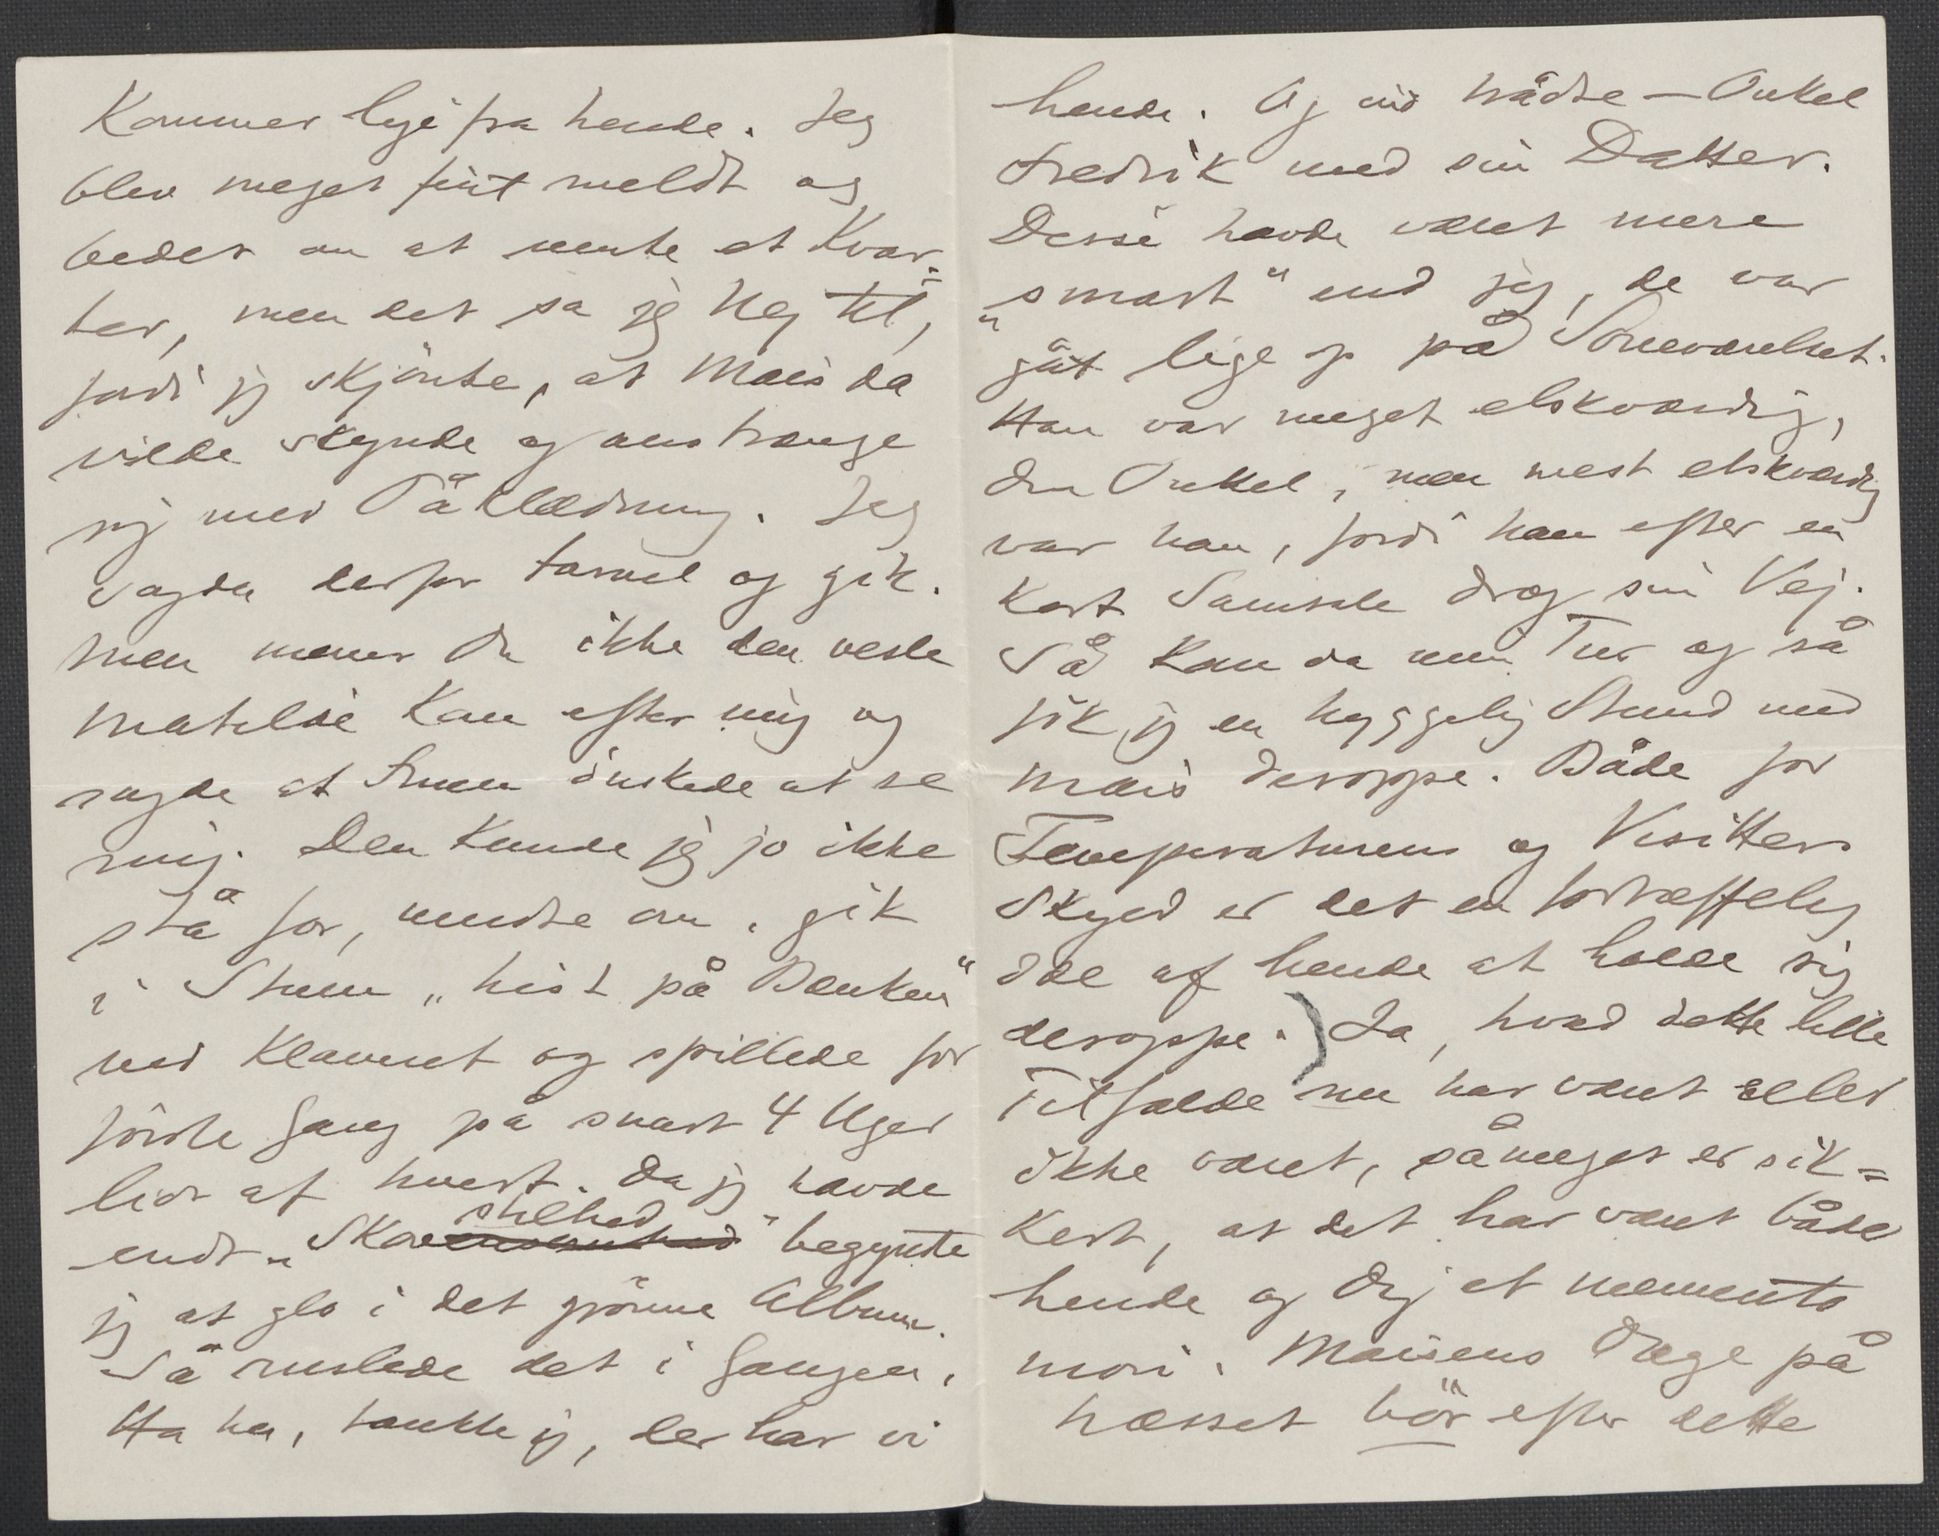 Kommer lige fra hende. Jeg
blev meget fint meldt og
bedet om at vente et Kvar-
ter, men det sa jeg Nej til,
fordi jeg skjönte, at Mais da
vilde skynde og anstrænge
sig med Påklædning. Jeg
sagde derfor farvel og gik.
Men mener Du ikke den vesle
Matilde kom efter mig og
sagde at Fruen önskede at se
mig. Den kunde jeg jo ikke
stå for, vendte om, gik
i Stuen „hist på Bænken"
ved Klaveret og spillede for
förste Gang på snart 4 Uger
lidt af hvert. Da jeg havde
stilhed
endt „Skovensomhed" begyndte
jeg at glo i det grönne Album.
Så ruslede det i Gangen,
Ha ha, tænkte jeg, der har vi
hende. Og ind trådte — Onkel
Fredrik med sin Datter.
Disse havde været mere
„smart" end jeg, de var
gåt lige op på Soveværelset.
Han var meget elskværdig,
den Onkel, men mest elskværdig
var han, fordi han efter en
kort Samtale drog sin Vej.
Så kom da min Tur og så
fik jeg en hyggelig Stund med
Mais deroppe. Både for
Temperaturens og Visitters
Skyld er det en fortræffelig
Ide af hende at holde sig
deroppe.) Ja, hvad dette lille
Tilfælde nu har været eller
ikke været, såmeget er sik=
kert, at det har været både
hende og Dig et memento
mori. Maisens Dage på
hæsset bör efter dette